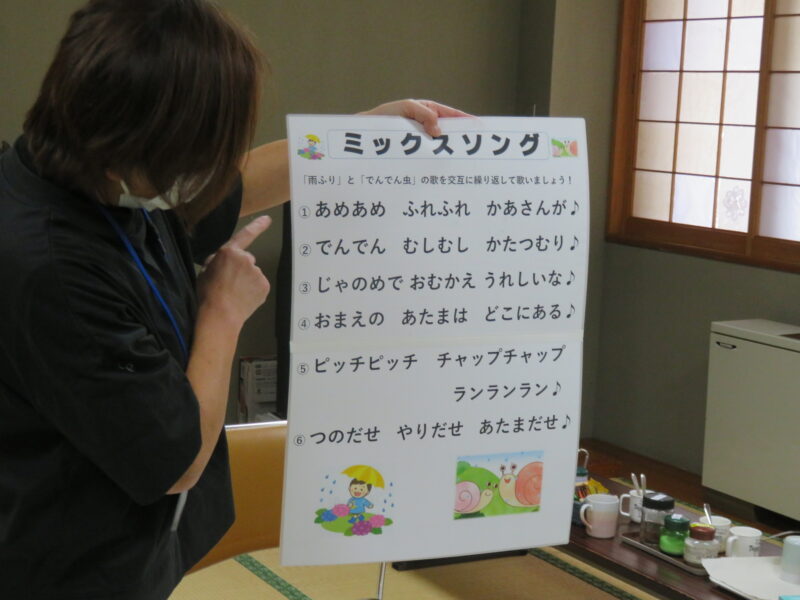 ミックスソング
「雨ふり」と「でんでん虫」の歌を交互に繰り返して歌いましょう！
①あめあめ　ふれふれ　かあさんが♪
②でんでん　むしむし　かたつむり♪
③じゃのめで おむかえ うれしいな♪
④おまえの　あたまは　どこにある♪
⑤ピッチピッチ　チャップチャップ
ランランラン♪
⑥つのだせ　やりだせ　あたまだせ♪